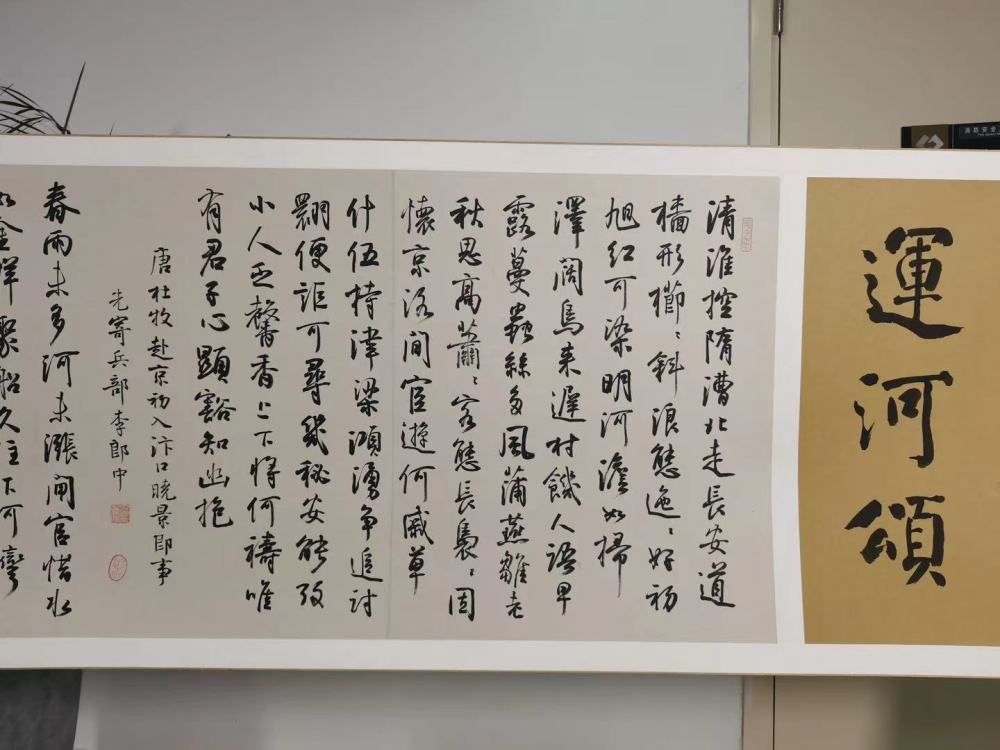 運河頌
清淮控隋漕北走長安道
檣形櫛々斜浪態迤々好初
旭紅可染明河澹如掃
澤闊鳥来遲村饑人語早
露蔓蟲絲多風蒲燕雛老
秋思高蕭々客態長裊々因
懷京洛間宦遊何戚草
什伍持津梁澒湧争追討
翾便詎可尋幾秘安能考
小人乏馨香上下將何禱唯
有君子心顯豁知幽抱
唐杜牧赴京初入汴口曉景即事
先寄兵部李郎中
春雨未多河未漲閘官惜水
如金样聚船久住下河灣
消防安全